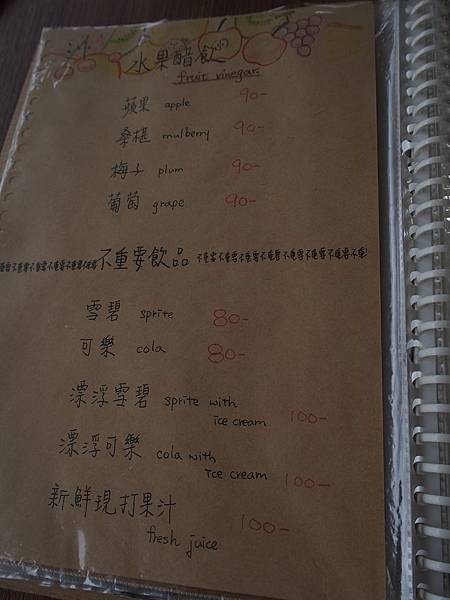 水果醋飲
fruit vinegar
蘋果 apple 90-
桑椹 mulberry 90-
梅子 plum 90-
葡萄 grape 90-
不重要飲品
雪碧 sprite 80-
可樂 cola 80-
漂浮雪碧 sprite with
ice cream 100-
漂浮可樂 cola with
Ice cream 100-
新鮮現打果汁 100-
fresh juice